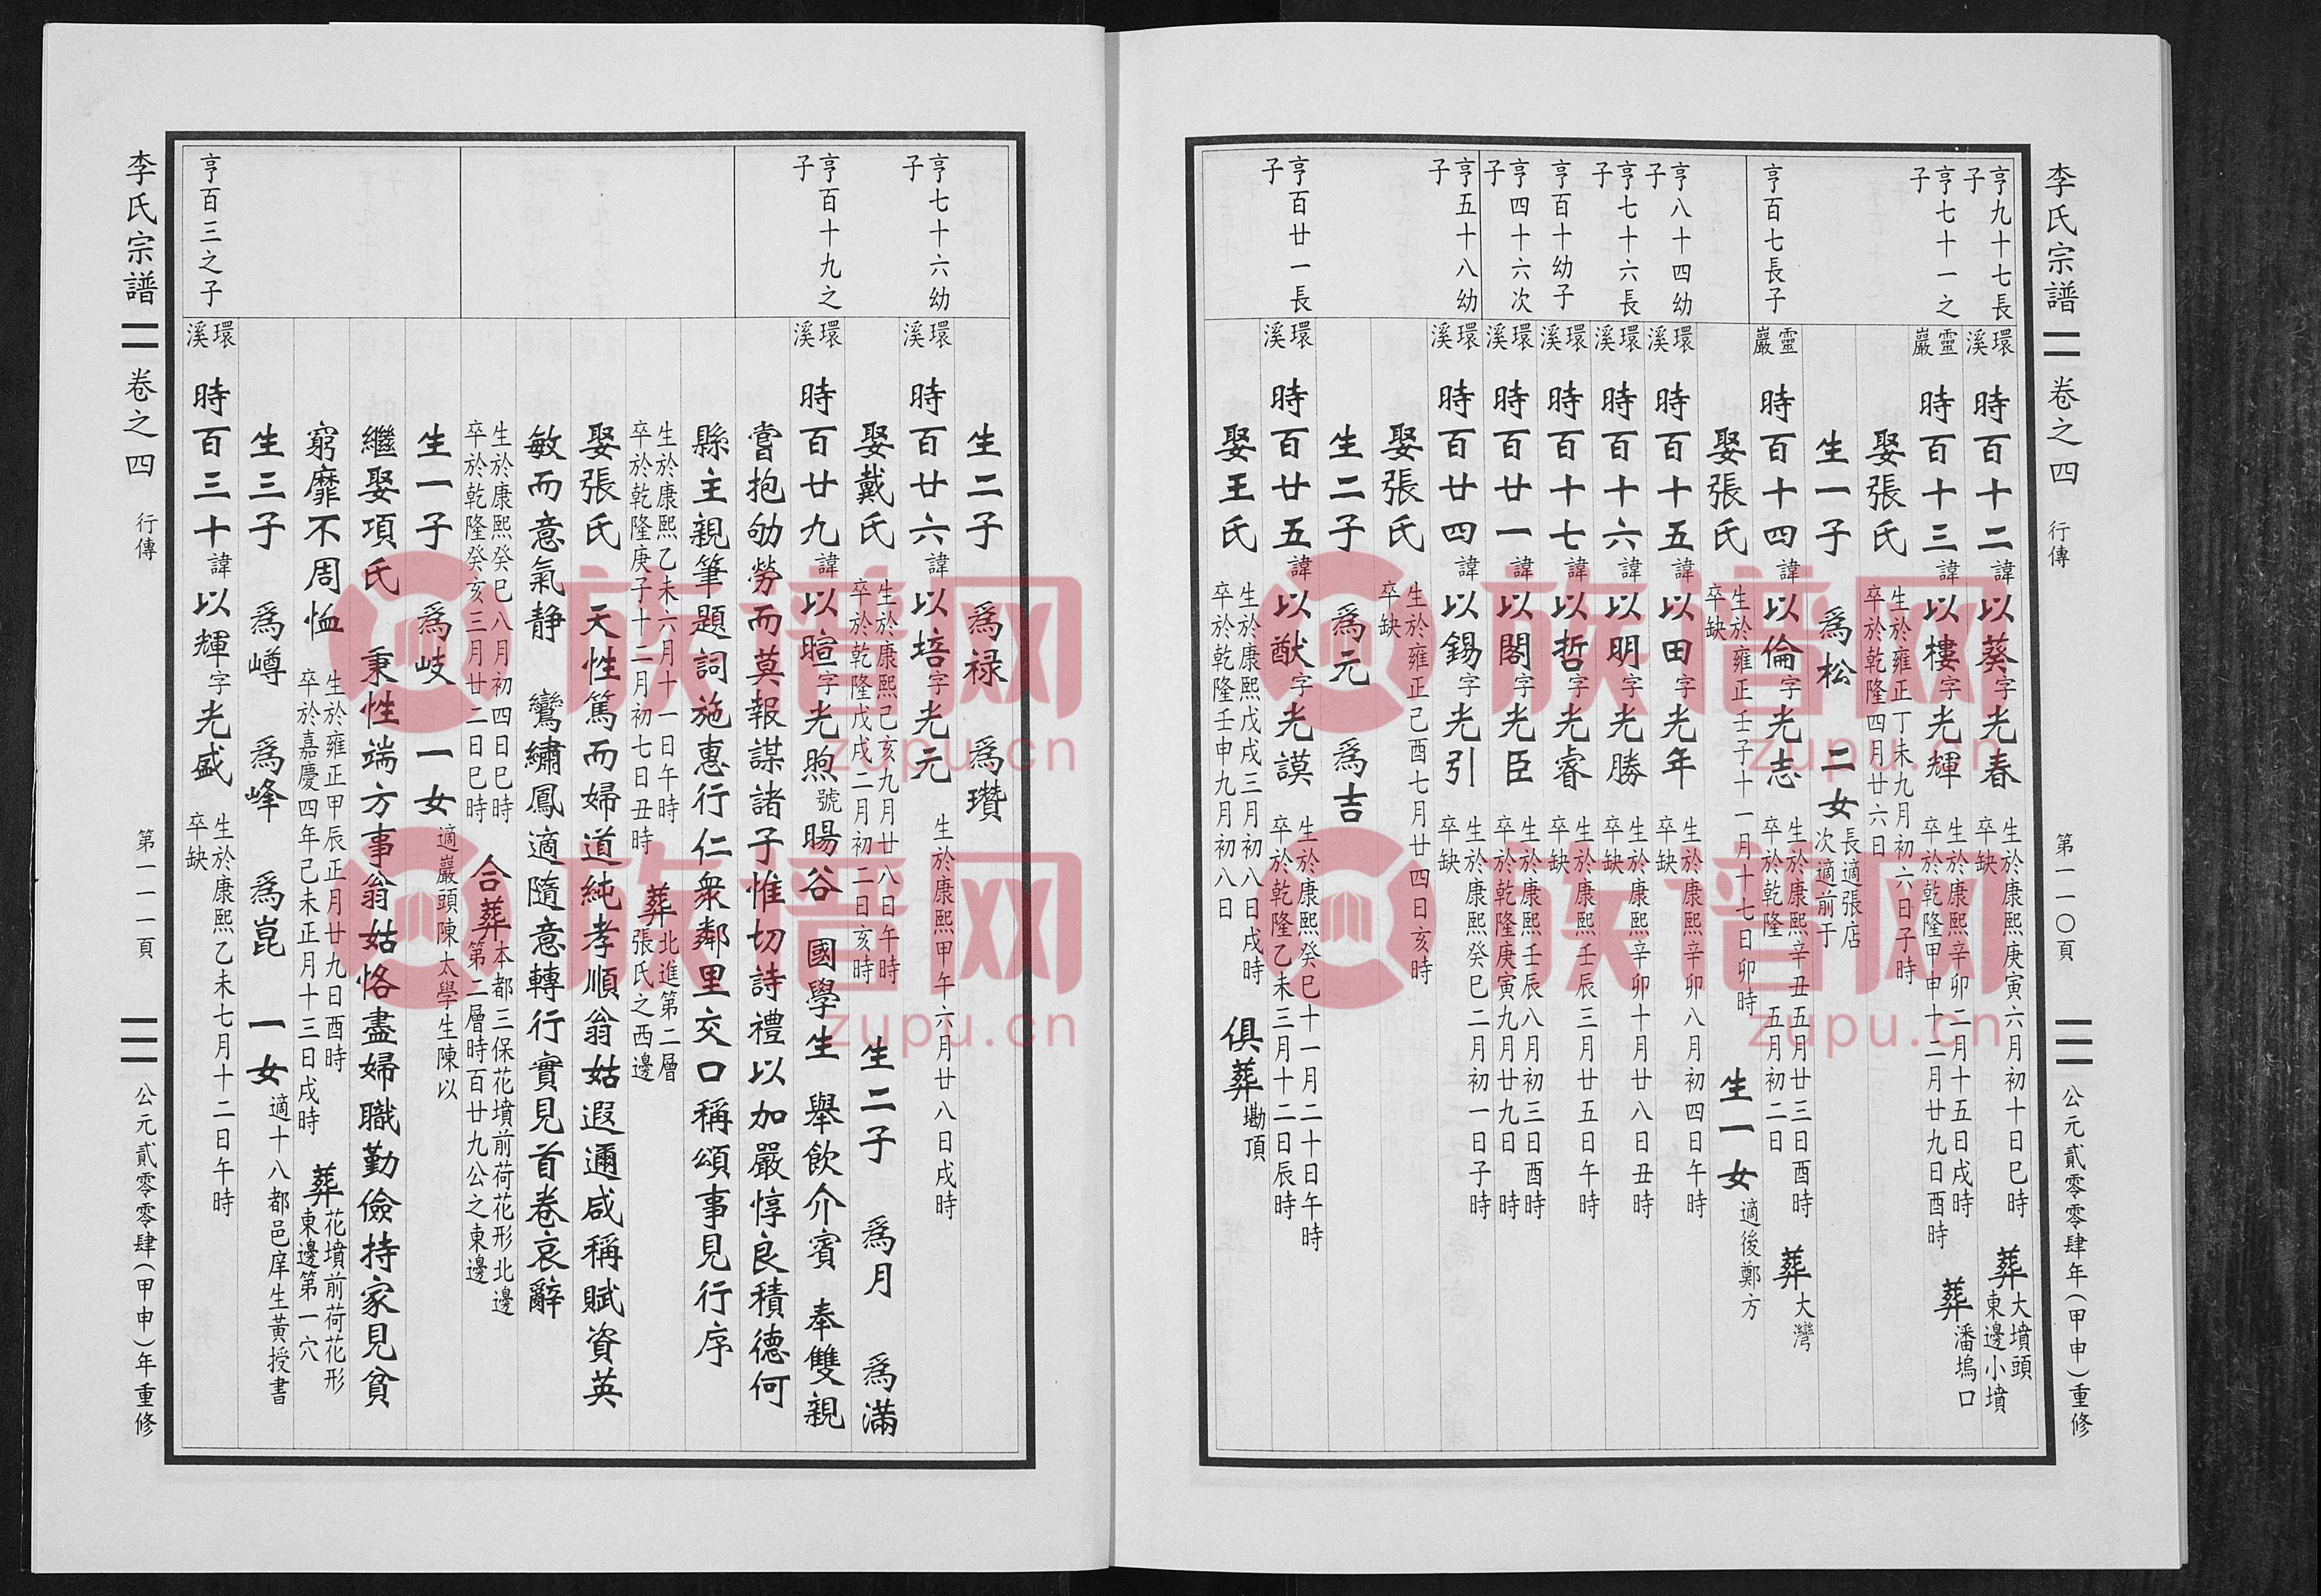 李氏宗譜
卷之四
行傳
第一一〇頁
公元貳零零肆年(甲申)重修
亨九十七長子
環溪
時百十二諱以葵字光春
生於康熙庚寅六月初十日巳時
卒缺
葬大墳頭東邊小墳
亨七十一之子
靈巖
時百十三諱以樓字光輝
生於康熙辛卯二月十五日戌時
卒於乾隆甲申十二月廿九日酉時
葬潘塢口
娶張氏
生於雍正丁未九月初六日子時
卒於乾隆四月廿六日
生一子 為松 二女
長適張店
次適前于
亨百七長子
靈巖
時百十四諱以倫字光志
生於康熙辛丑五月廿三日酉時
卒於乾隆 五月初二日
葬大灣
娶張氏
生於雍正壬子十一月十七日卯時
卒缺
生一女
適後鄭方
亨八十四幼子
環溪
時百十五諱以田字光年
生於康熙辛卯八月初四日午時
卒缺
亨七十六長子
環溪
時百十六諱以明字光勝
生於康熙辛卯十月廿八日丑時
卒缺
亨百十幼子
環溪
時百十七諱以哲字光睿
生於康熙壬辰三月廿五日午時
卒缺
亨四十六次子
環溪
時百廿一諱以閣字光臣
生於康熙壬辰八月初三日酉時
卒於乾隆庚寅九月廿九日 時
亨五十八幼子
環溪
時百廿四諱以錫字光引
生於康熙癸巳二月初一日子時
卒缺
娶張氏
生於雍正己酉七月廿四日亥時
卒缺
生二子 為元 為吉
亨百廿一長子
環溪
時百廿五諱以猷字光謨
生於康熙癸巳十一月二十日午時
卒於乾隆乙未三月十二日辰時
娶王氏
生於康熙戊戌三月初八日戌時
卒於乾隆壬申九月初八日
俱葬塴頂
生二子 為祿 為瓚
亨七十六幼子
環溪
時百廿六諱以培字光元
生於康熙甲午六月廿八日戌時
娶戴氏
生於康熙己亥九月廿八日午時
卒於乾隆戊戌二月初二日亥時
生二子 為月 為滿
亨百十九之子
環溪
時百廿九諱以暄字光煦號暘谷 國學生 舉飲介賓 奉雙親
嘗抱劬勞而莫報謀諸子惟切詩禮以加嚴惇良積德何
縣主親筆題詞施惠行仁衆鄰里交口稱頌事見行序
生於康熙乙未六月十一日午時
卒於乾隆庚子十二月初七日丑時
葬北進第二層張氏之西邊
娶張氏 天性篤而婦道純孝順翁姑遐邇咸稱賦資英
敏而意氣静 鸞繡鳳適隨意轉行實見首卷哀辭
生於康熙癸巳八月初四日巳時
卒於乾隆癸亥三月廿二日巳時
合葬本都三保花墳前荷花形北邊第二層時百廿九公之東邊
生一子 為岐 一女
適巖頭陳太學生陳以
繼娶項氏 秉性端方事翁姑恪盡婦職勤儉持家見貧
窮靡不周恤
生於雍正甲辰正月廿九日酉時
卒於嘉慶四年己未正月十三日戌時
葬花墳前荷花形東邊第一穴
生三子 為嶟 為峰 為崑 一女
適十八都邑庠生黃授書
亨百三之子
環溪
時百三十諱以輝字光盛
生於康熙乙未七月十二日午時
卒缺
李氏宗譜
卷之四
行傳
第一一一頁
公元貳零零肆(甲申)年重修
族譜网
zupu.cn
族譜网
zupu.cn
族譜网
zupu.cn
族譜网
zupu.cn